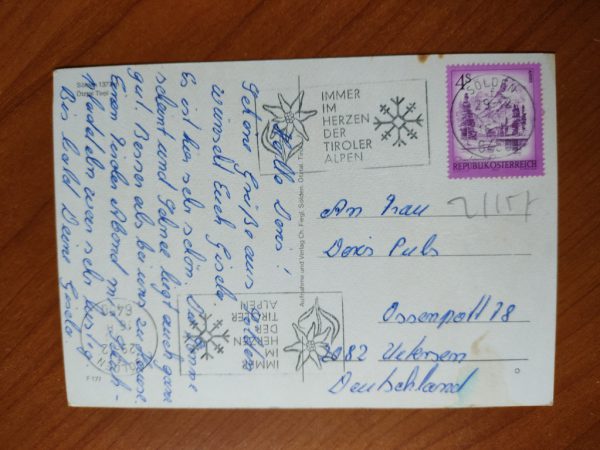 Sölden 1377 m
Ötztal, Tirol
Hallo Doris!
Schöne Grüße aus Sölden
wünscht Euch Gisela
Es ist hier sehr schön. Die Sonne
scheint und Schnee liegt auch ganz
gut. Besser als bei uns zu Hause.
Euer Tiroler Abend mit
war sehr lustig
Bis bald Deine Gisela.
F 177
Aufnahme und Verlag Ch. Fiegl, Sölden, Ötztal, Tirol
IMMER
IM
HERZEN
DER
TIROLER
ALPEN
4S
SÖLDEN
REPUBLIK ÖSTERREICH
An Frau
Doris Puls
Ossenpatt 28
2082 Uetersen
Deutschland
IMMER
IM
HERZEN
DER
TIROLER
ALPEN